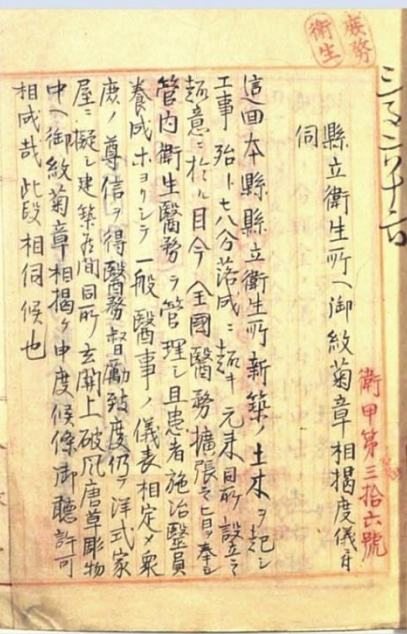 庶務
衛生
衛甲第三拾六號
縣立衛生所ヘ御紋菊章相揭度儀ニ付
伺
這回本縣縣立衛生所新築ノ土木ヲ起シ
工事殆ト七八分落成ニ趣キ元来同所設立ノ
趣意ニ於ル目今全國醫務擴張之旨ヲ奉シ
管内衛生醫務ヲ管理シ且患者施治醫員
養成ホヨリシテ一般醫事ノ儀表相定メ衆
庶ノ尊信ヲ得醫務督勵致度仍テ洋式家
屋ニ擬シ建築為間同所玄關上破風唐草彫物
中ヘ御紋菊章相揭ケ申度候條御聽許可
相成哉此段相伺候也